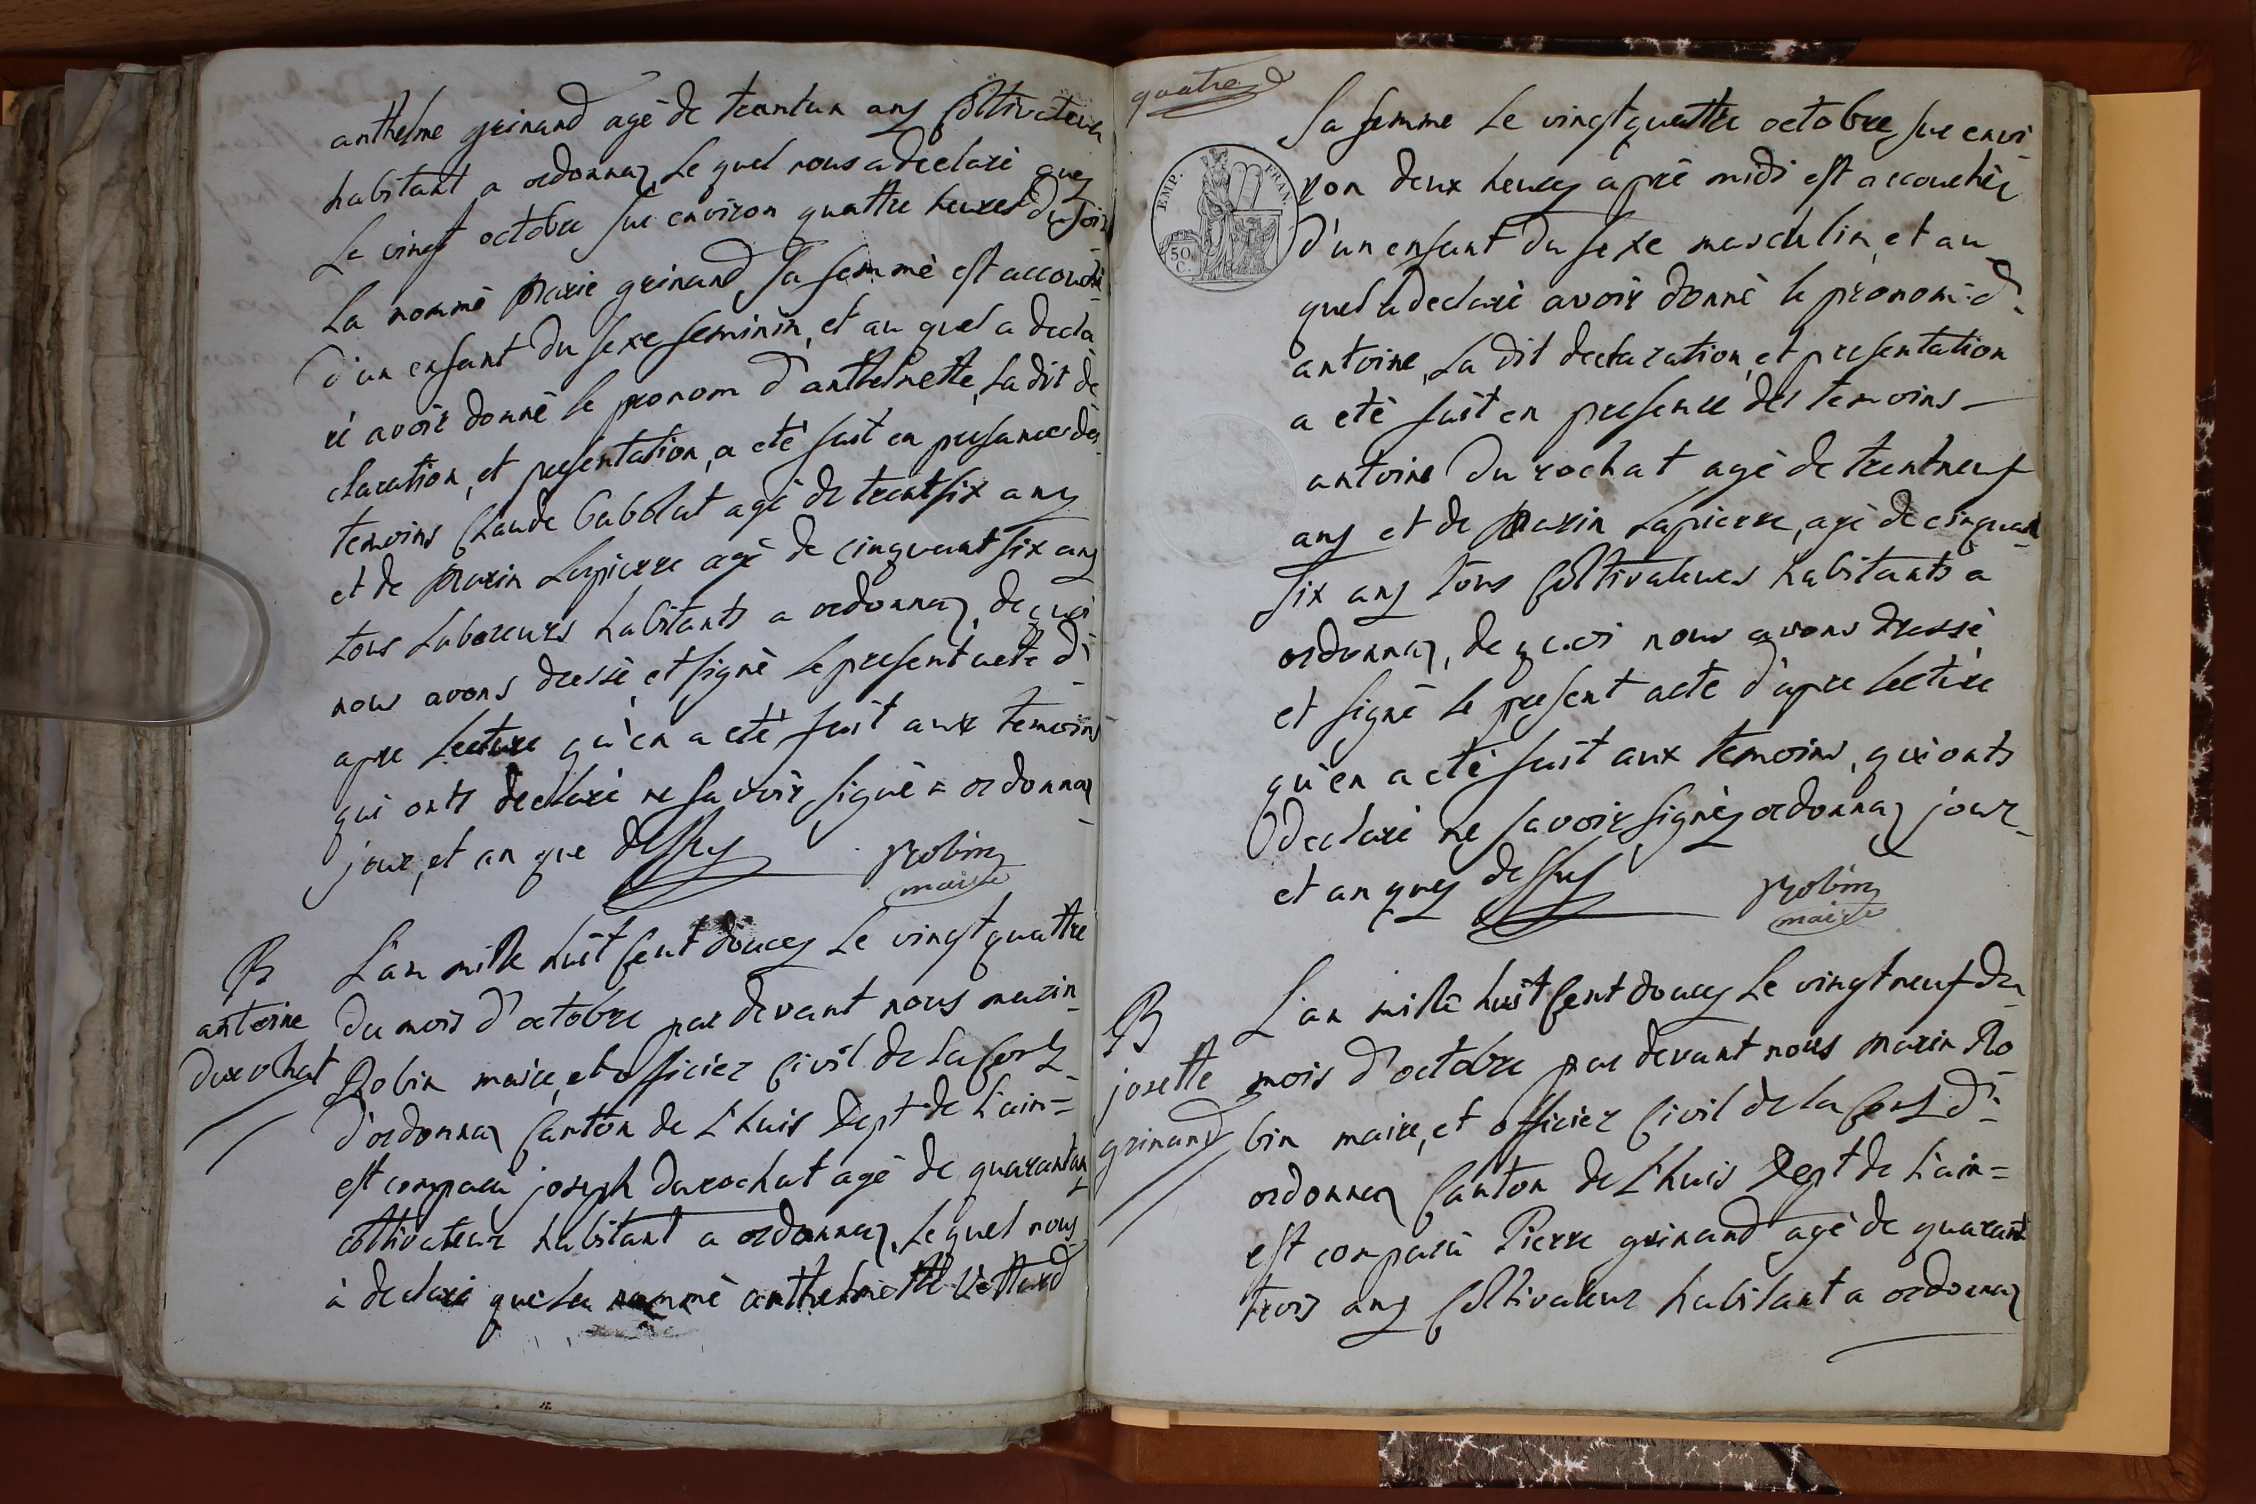 anthelme grinand agé de trantun ans Coltivateur
habitant a ordonnaz, le quel nous a declaré que
Le vingt octobre sur environ quattre heures du soir
La nommé Marie grinand sa femme est accouché
d'un enfant du sexe feminin, et au quel a decla
ré avoir donné le pronom d'anthelmette, La dit de
claration, et presentation, a eté fait en presance des
temoins Claude Cabolat agé de trentsix ans
et de Marin Lapierre agé de cinquantsix ans
tous Laboreurs habitants a ordonnaz, de quoi
nous avons dressé, et signé le present acte d'
apre Lecture qu'en a eté fait aux temoins
qui onts declaré ne savoir signé = ordonnaz
jour, et an que dessus Robin
maire
B
antoine
durochat
L'an mille huit Cent douces Le vingt quattre
du mois d'octobre par devant nous marin
Robin maire, et officier Civil de La Com.
d'ordonnaz Canton de L'huis Dept de L'ain =
est comparu joseph durochat agé de quarantan
coltivateur habitant a ordonnaz, Le quel nous
à declaré que La nommé anthelmette Vettard
quatre
EMP. FRAN.
50
C.
Sa femme Le vingt quattre octobre sur envi
ron deux heures apré midi est accouchée
d'un enfant du sexe masculin, et au
quel a declaré avoir donné le pronom d'
antoine, La dit declaration, et presentation
a eté fait en presence des temoins
antoine Durochat agé de trentneuf
ans et de Marin Lapierre, agé de cinquan
six ans tous Coltivateurs habitants a
ordonnaz, de quoi nous avons dressé
et signé le present acte d'apre Lecture
qu'en a eté fait aux temoins, qui onts
declaré ne savoir signé ordonnaz jour
et an que dessus Robin
maire
B
josette
grinand
L'an mille huit Cent douces Le vingtneuf du
mois d'octobre par devant nous Marin Ro
bin maire, et officier Civil de la Com. d'
ordonnaz Canton de L'huis Dept de L'ain =
est comparu Pierre grinand agé de quarant
trois ans Coltivateur habitant a ordonnaz